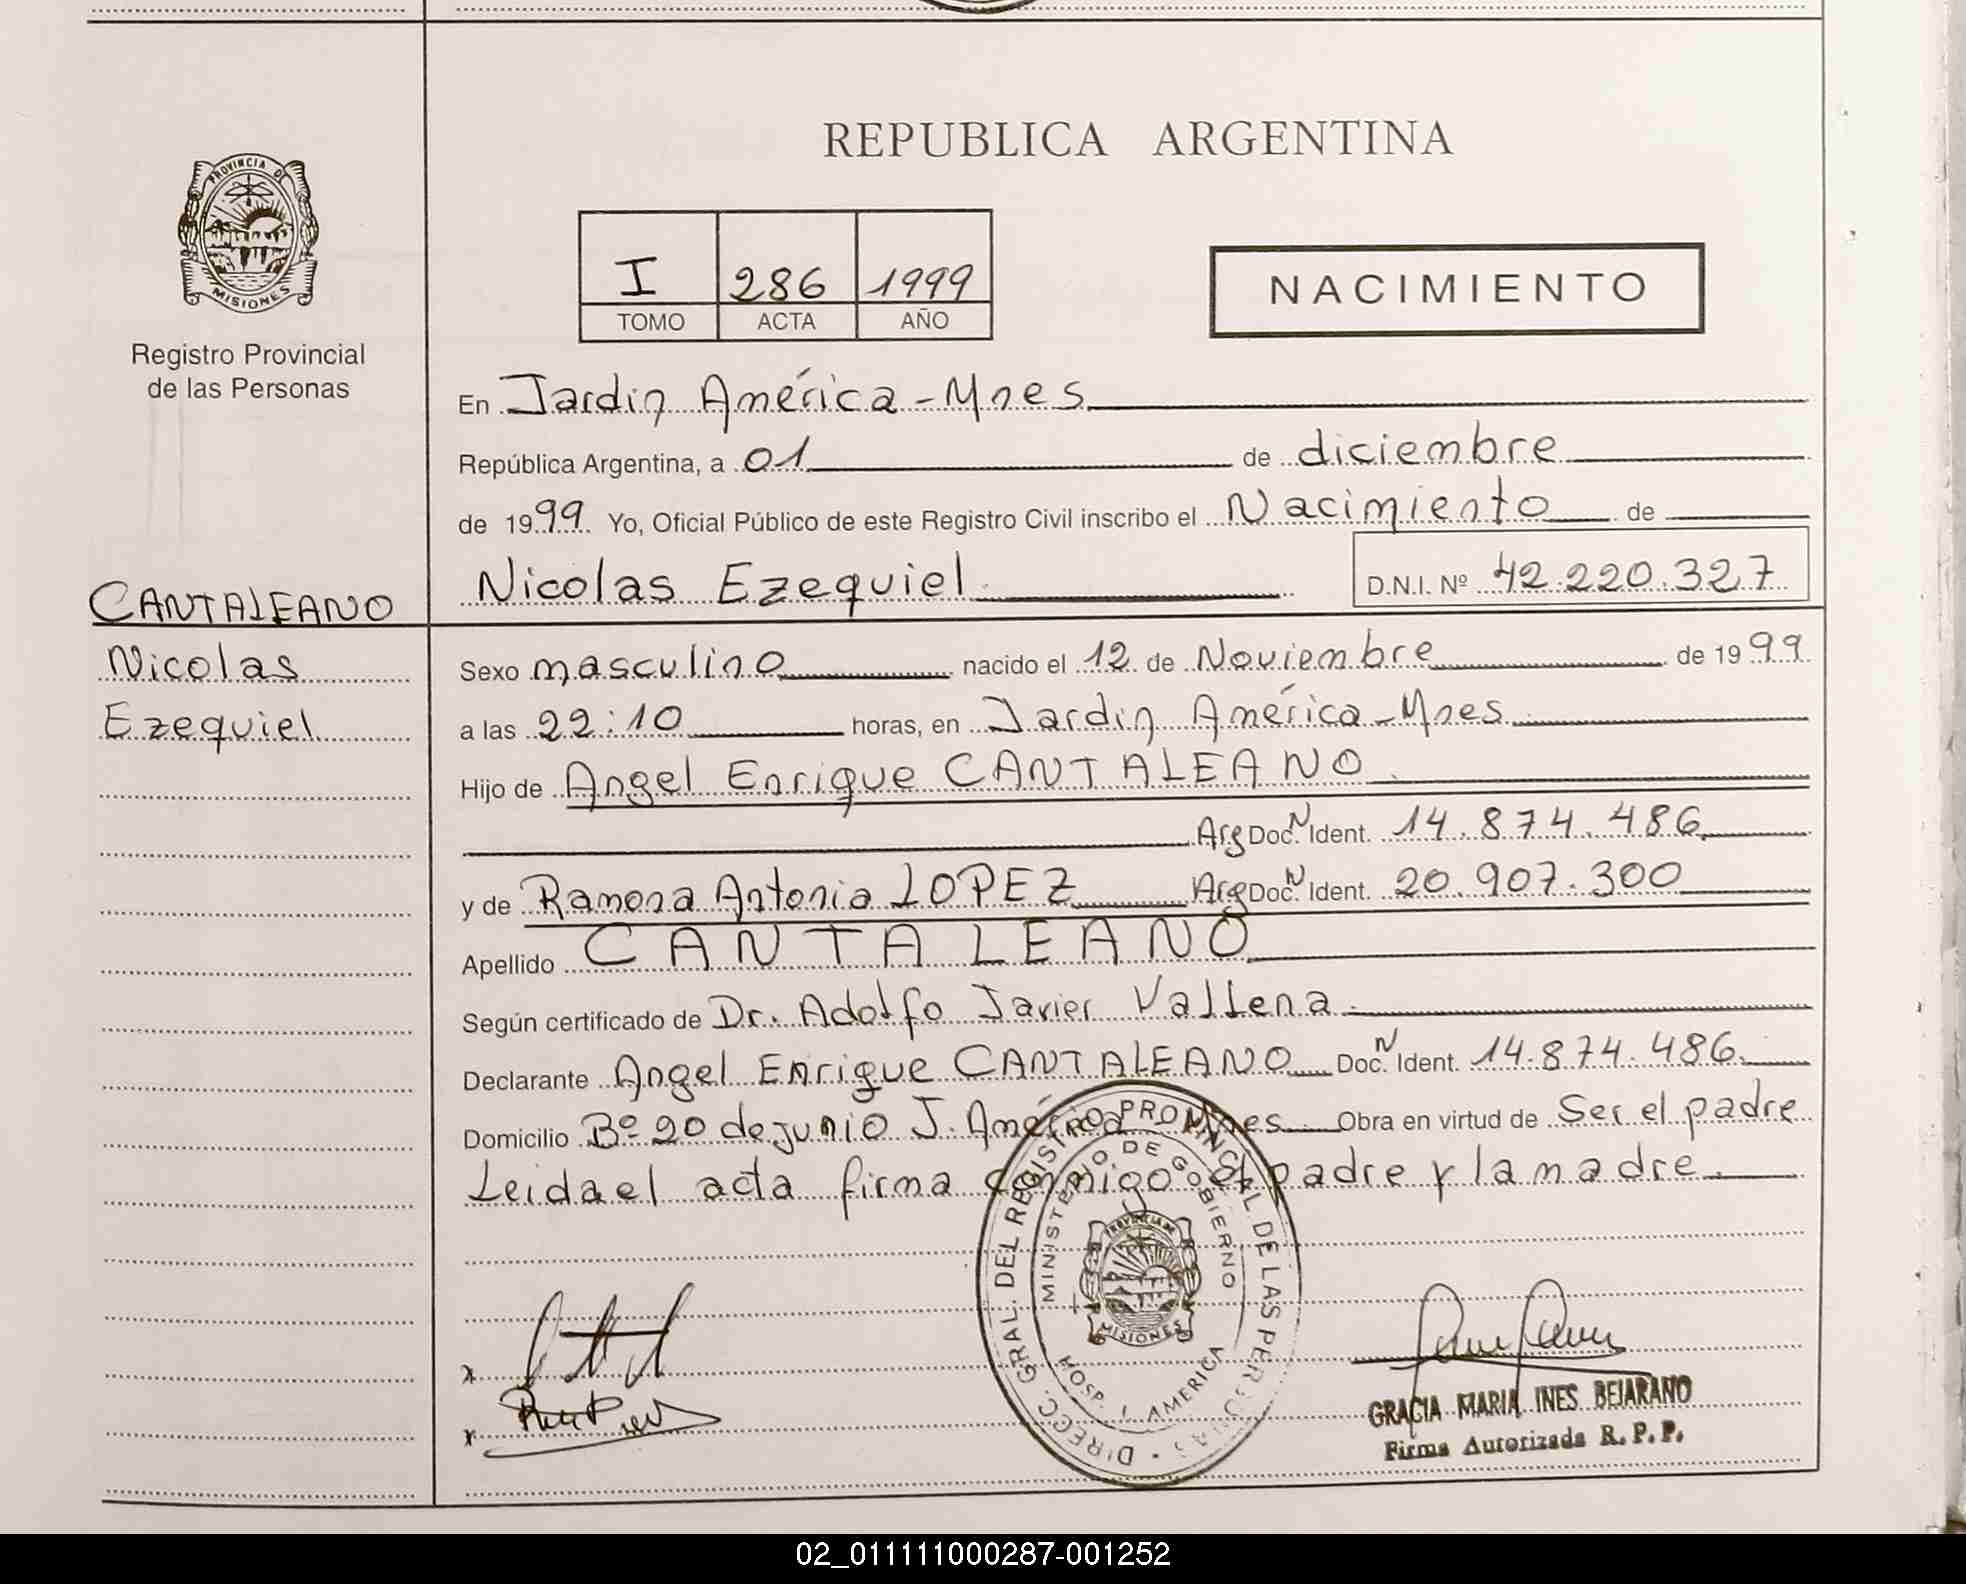 PROVINCIA DE
MISIONES
Registro Provincial
de las Personas
CANTALEANO
Nicolas
Ezequiel
REPUBLICA ARGENTINA
I 286 1999
TOMO ACTA AÑO
NACIMIENTO
En Jardin América - Mnes
República Argentina, a 01 de diciembre
de 1999 Yo, Oficial Público de este Registro Civil inscribo el Nacimiento de
Nicolas Ezequiel D.N.I. Nº 42.220.327
Sexo masculino nacido el 12 de Noviembre de 1999
a las 22:10 horas, en Jardin América - Mnes
Hijo de Angel Enrique CANTALEANO
Arg Doc. N Ident. 14.874.486
y de Ramona Antonia LOPEZ Arg Doc. N Ident. 20.907.300
Apellido CANTALEANO
Según certificado de Dr. Adolfo Javier Vallena
Declarante Angel Enrique CANTALEANO Doc. N Ident. 14.874.486
Domicilio Bº 20 de junio J. América Mnes Obra en virtud de Ser el padre
Leida el acta firma conmigo el padre y la madre
DIRECC. GRAL. DEL REGISTRO PROVINCIAL DE LAS PERSONAS
MINISTERIO DE GOBIERNO
PROVINCIA DE
MISIONES
HOSP. J. AMERICA
GRACIA MARIA INES BEJARANO
Firma Autorizada R. P. P.
02_011111000287-001252